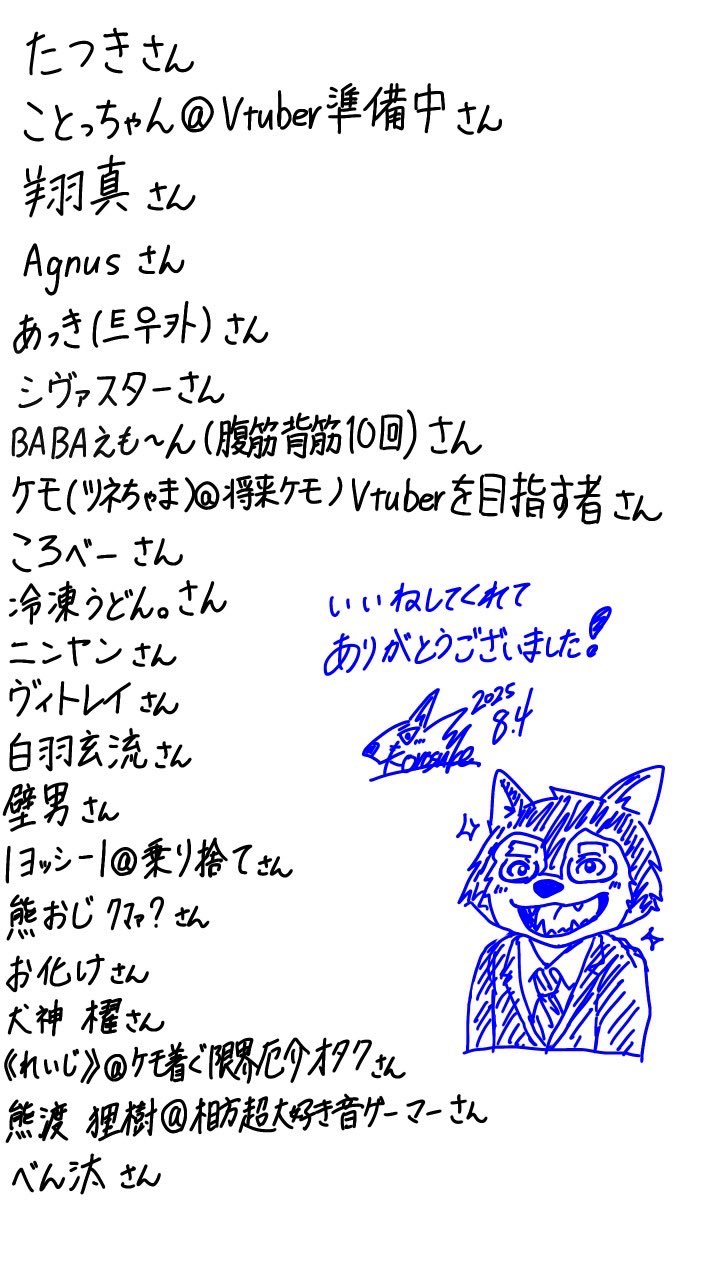 たつきさん
ことっちゃん@Vtuber準備中さん
翔真さん
Agnusさん
あっき(트우카)さん
シヴァスターさん
BABAえも～ん(腹筋背筋10回)さん
ケモ(ツネちゃま)@将来ケモノVtuberを目指す者さん
ころべーさん
冷凍うどん。さん
ニンヤンさん
ヴィトレイさん
白羽玄流さん
壁男さん
|ヨッシー|@乗り捨てさん
熊おじ ｸﾌｧ?さん
お化けさん
犬神 櫂さん
《れいじ》@ケモ着ぐ限界厄介オタクさん
熊渡 狸樹@相方超大好き音ゲーマーさん
べん汰さん
いいねしてくれて
ありがとうございました!
2025
8.4
Korosuke